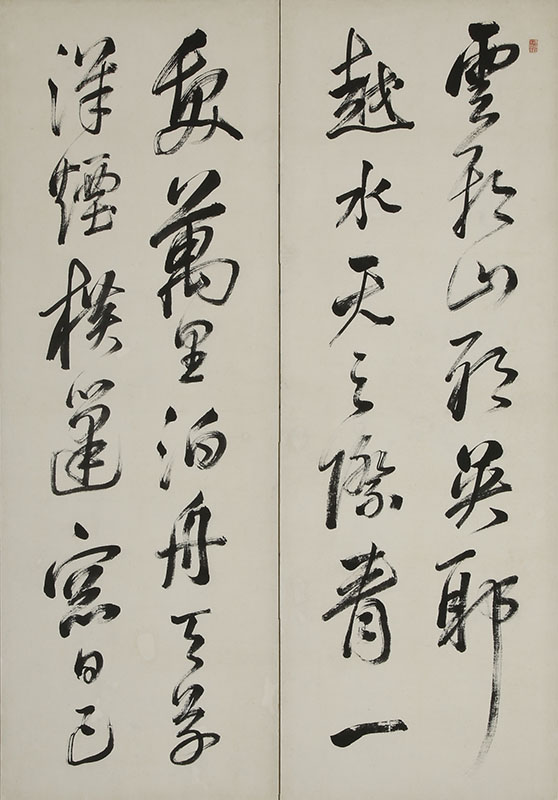 雲耶山耶吳耶
越水天之際青一
髮萬里泊舟天草
洋煙橫篷窓日已